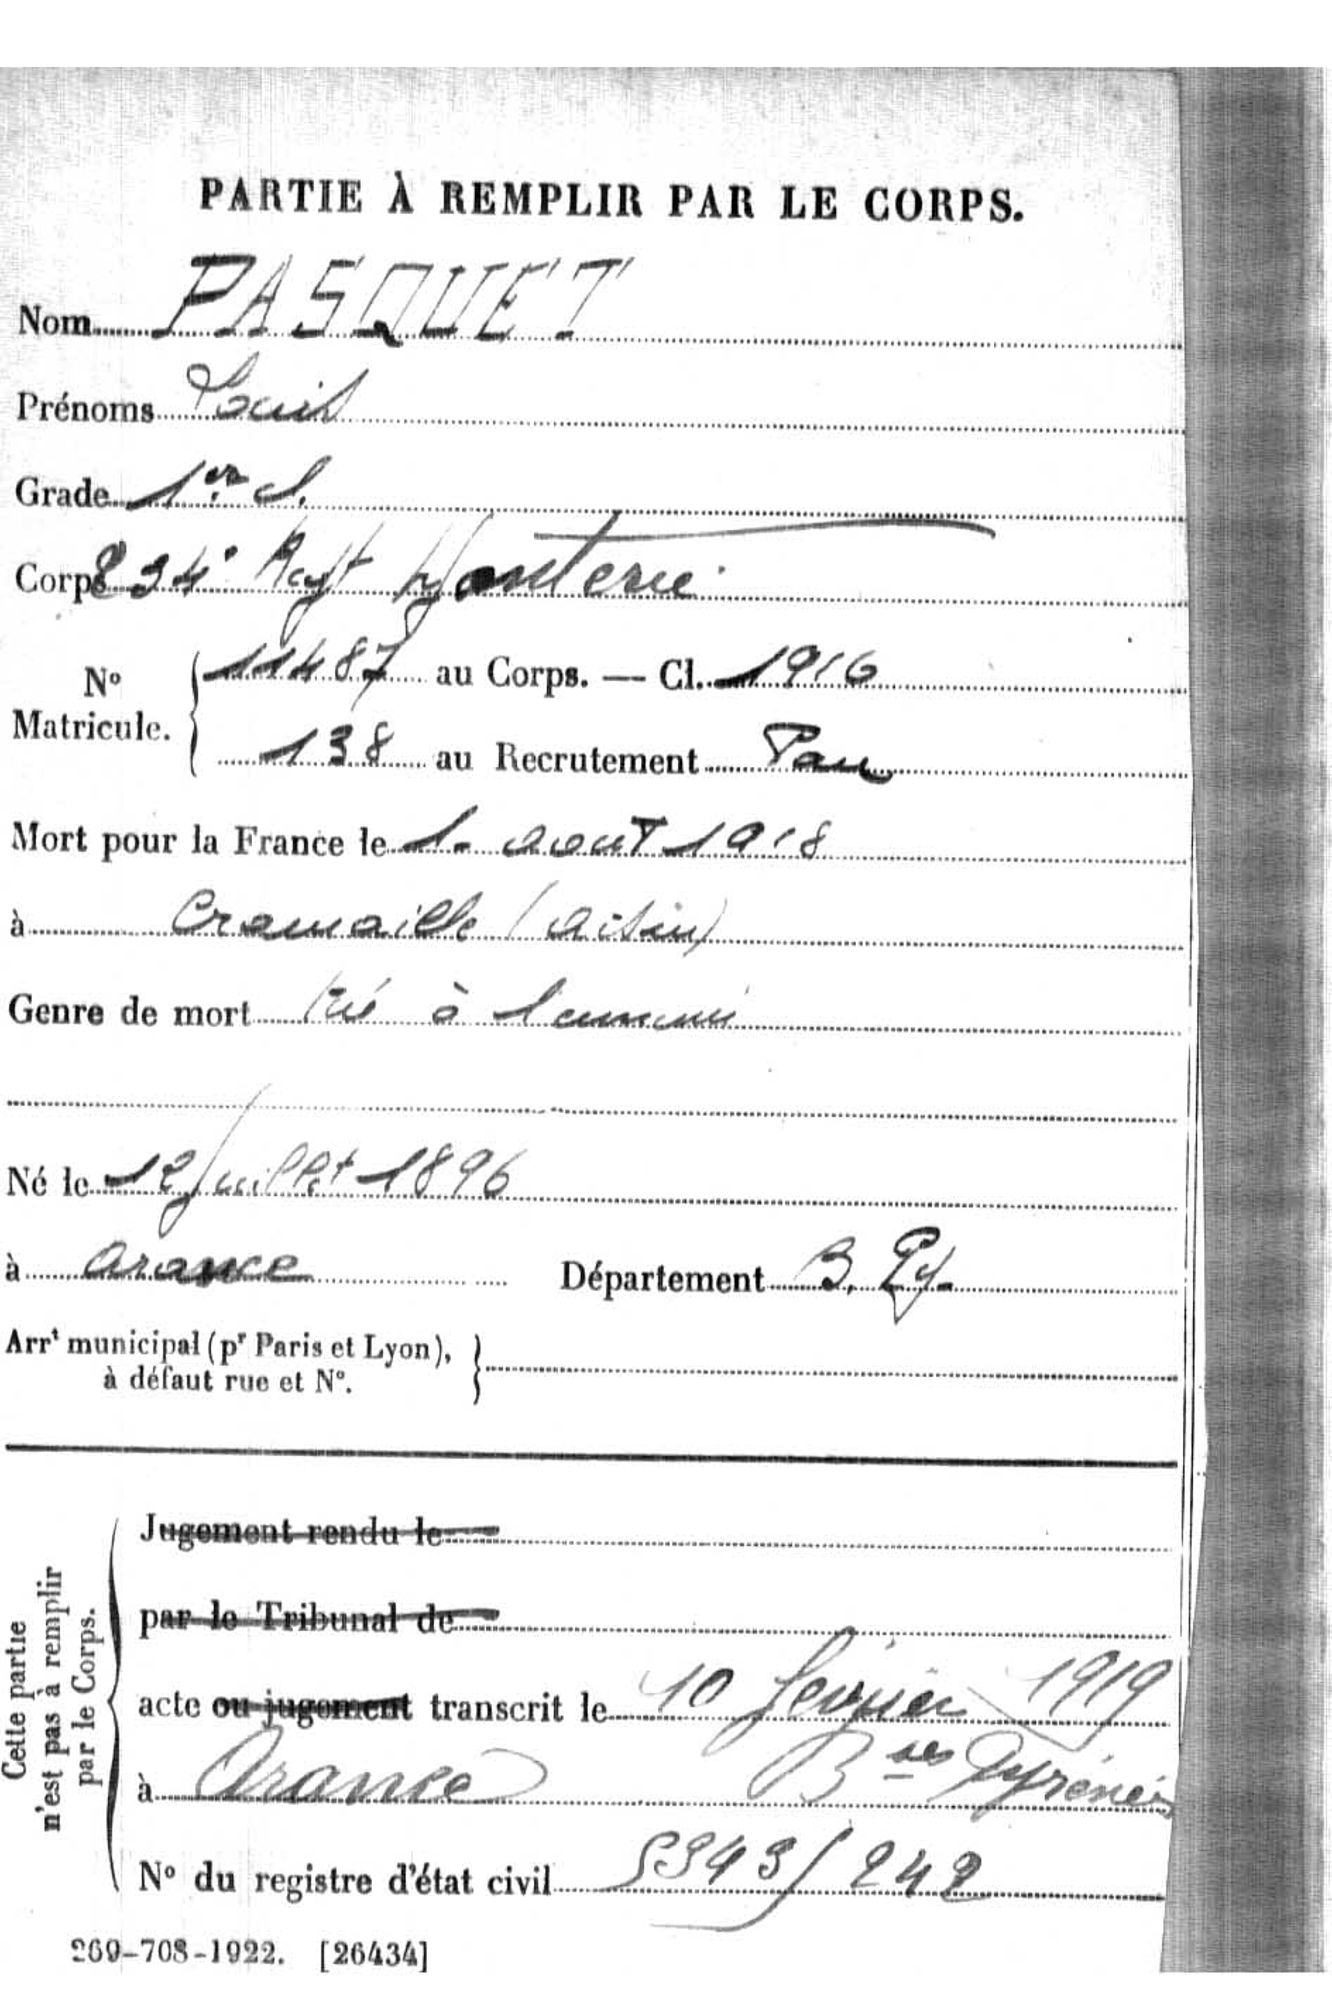 PARTIE À REMPLIR PAR LE CORPS.
Nom PASQUET
Prénoms Louis
Grade 1er cl.
Corps 234e Regt Infanterie
No Matricule. 11487 au Corps. — Cl. 1916
138 au Recrutement Pau
Mort pour la France le 1- aout 1918
à Cramaille (Aisne)
Genre de mort tué à l'ennemi
Né le 12 juillet 1896
à Arance Département B. Py.
Arrt municipal (pr Paris et Lyon),
à défaut rue et No.
Cette partie
n'est pas à remplir
par le Corps.
Jugement rendu le
par le Tribunal de
acte ou jugement transcrit le 10 février 1919
à Arance Bses Pyrénées
No du registre d'état civil 5343/242
269-708-1922. [26434]